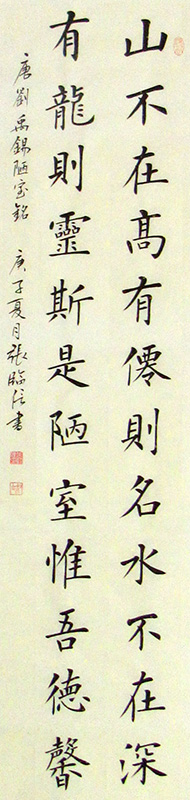 山不在高有僊則名水不在深
有龍則靈斯是陋室惟吾德馨
唐劉禹錫陋室銘 庚子夏月張臨信書